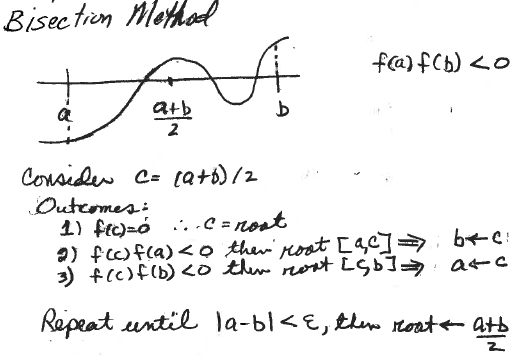 Bisection Method
f(a)f(b) < 0
a
a+b
2
b
Consider c = (a+b)/2
Outcomes:
1) f(c)=0 ∴ c = root
2) f(c)f(a) < 0 then root [a,c] ⇒ b ← c
3) f(c)f(b) < 0 then root [c,b] ⇒ a ← c
Repeat until |a-b| < ε, then root ← a+b
2